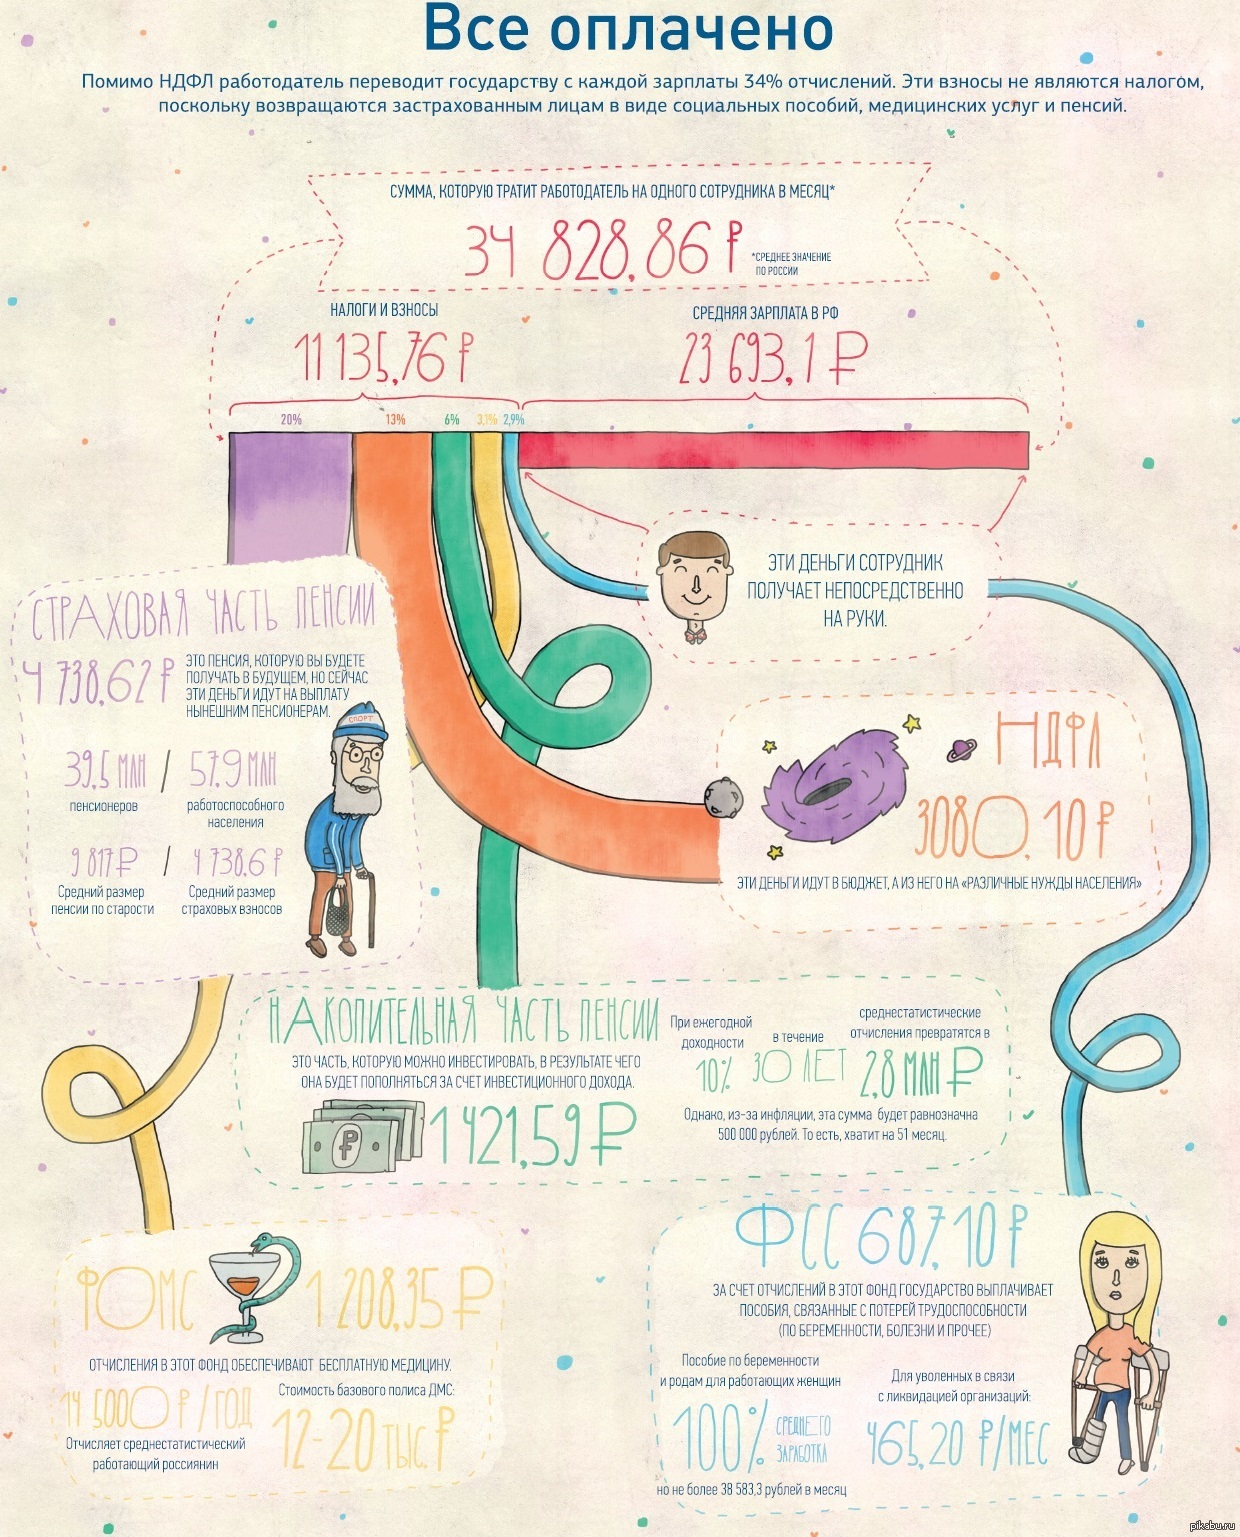 Все оплачено
Помимо НДФЛ работодатель переводит государству с каждой зарплаты 34% отчислений. Эти взносы не являются налогом,
поскольку возвращаются застрахованным лицам в виде социальных пособий, медицинских услуг и пенсий.
СУММА, КОТОРУЮ ТРАТИТ РАБОТОДАТЕЛЬ НА ОДНОГО СОТРУДНИКА В МЕСЯЦ*
34 828,86 ₽
*СРЕДНЕЕ ЗНАЧЕНИЕ
ПО РОССИИ
НАЛОГИ И ВЗНОСЫ
11 135,76 ₽
СРЕДНЯЯ ЗАРПЛАТА В РФ
23 693,1 ₽
20% 13% 6% 3,1% 2,9%
ЭТИ ДЕНЬГИ СОТРУДНИК
ПОЛУЧАЕТ НЕПОСРЕДСТВЕННО
НА РУКИ.
СТРАХОВАЯ ЧАСТЬ ПЕНСИИ
4 738,62 ₽
ЭТО ПЕНСИЯ, КОТОРУЮ ВЫ БУДЕТЕ
ПОЛУЧАТЬ В БУДУЩЕМ, НО СЕЙЧАС
ЭТИ ДЕНЬГИ ИДУТ НА ВЫПЛАТУ
НЫНЕШНИМ ПЕНСИОНЕРАМ.
СПОРТ
39,5 МЛН / 57,9 МЛН
пенсионеров
работоспособного
населения
9 817 ₽ / 4 738,6 ₽
Средний размер
пенсии по старости
Средний размер
страховых взносов
НДФЛ
3080,10 ₽
ЭТИ ДЕНЬГИ ИДУТ В БЮДЖЕТ, А ИЗ НЕГО НА «РАЗЛИЧНЫЕ НУЖДЫ НАСЕЛЕНИЯ»
НАКОПИТЕЛЬНАЯ ЧАСТЬ ПЕНСИИ
ЭТО ЧАСТЬ, КОТОРУЮ МОЖНО ИНВЕСТИРОВАТЬ, В РЕЗУЛЬТАТЕ ЧЕГО
ОНА БУДЕТ ПОПОЛНЯТЬСЯ ЗА СЧЕТ ИНВЕСТИЦИОННОГО ДОХОДА.
₽
1 421,59 ₽
При ежегодной
доходности
10%
в течение
30 ЛЕТ
среднестатистические
отчисления превратятся в
2,8 МЛН ₽
Однако, из-за инфляции, эта сумма будет равнозначна
500 000 рублей. То есть, хватит на 51 месяц.
ФОМС 1 208,35 ₽
ОТЧИСЛЕНИЯ В ЭТОТ ФОНД ОБЕСПЕЧИВАЮТ БЕСПЛАТНУЮ МЕДИЦИНУ.
14 5000 ₽/ГОД
Отчисляет среднестатистический
работающий россиянин
Стоимость базового полиса ДМС:
12-20 ТЫС. ₽
ФСС 687,10 ₽
ЗА СЧЕТ ОТЧИСЛЕНИЙ В ЭТОТ ФОНД ГОСУДАРСТВО ВЫПЛАЧИВАЕТ
ПОСОБИЯ, СВЯЗАННЫЕ С ПОТЕРЕЙ ТРУДОСПОСОБНОСТИ
(ПО БЕРЕМЕННОСТИ, БОЛЕЗНИ И ПРОЧЕЕ)
Пособие по беременности
и родам для работающих женщин
100% СРЕДНЕГО
ЗАРАБОТКА
но не более 38 583,3 рублей в месяц
Для уволенных в связи
с ликвидацией организаций:
465,20 ₽/МЕС
pikabu.ru